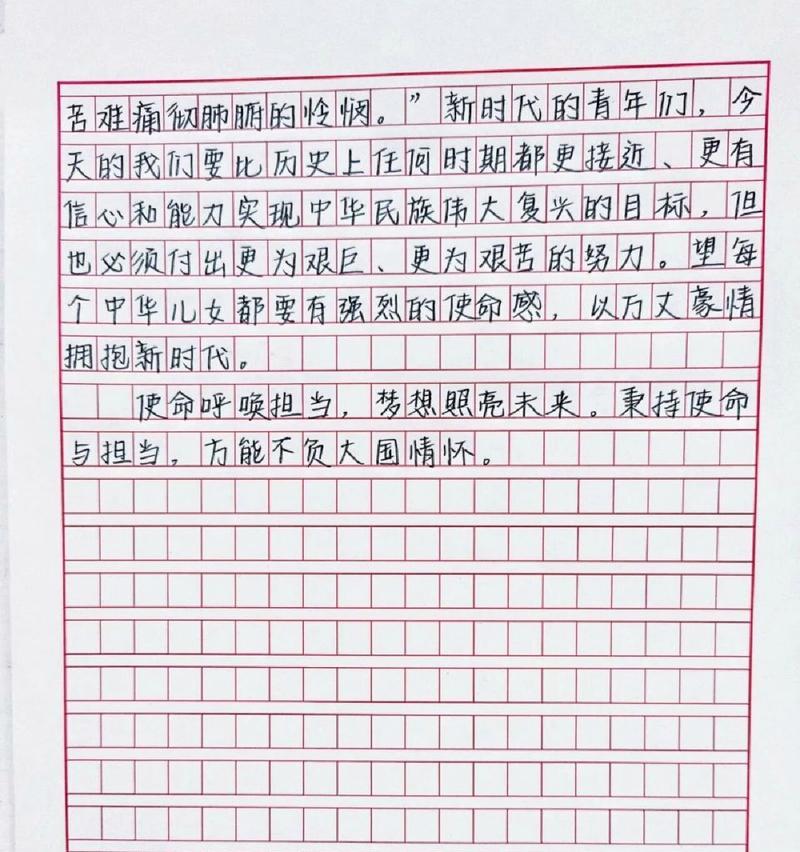 苦难痛彻肺腑的怜悯。”新时代的青年们，今
天的我们要比历史上任何时期都更接近、更有
信心和能力实现中华民族伟大复兴的目标，但
也必须付出更为艰巨、更为艰苦的努力。望每
个中华儿女都要有强烈的使命感，以万丈豪情
拥抱新时代。
使命呼唤担当，梦想照亮未来。秉持使命
与担当，方能不负大国情怀。